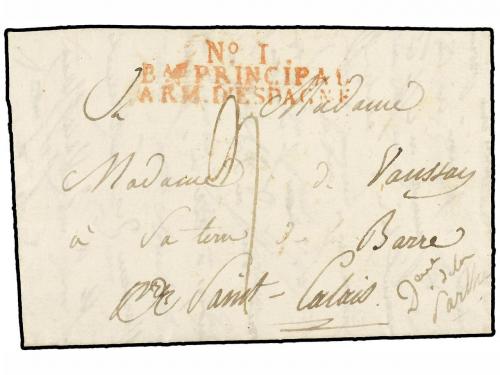 Nº 1
Bau PRINCIPAL
ARM. D'ESPAGNE
A Madame
Madame de Vanssay
à sa terre de la Barre
Saint-Calais
Dept de la
Sarthe